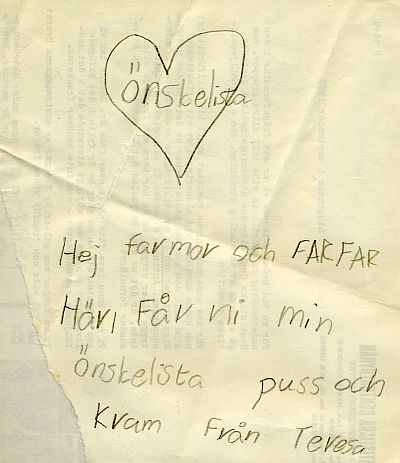 Önskelista
Hej farmor och FARFAR
Här, Får ni min
Önskelista puss och
Kram Från Teresa